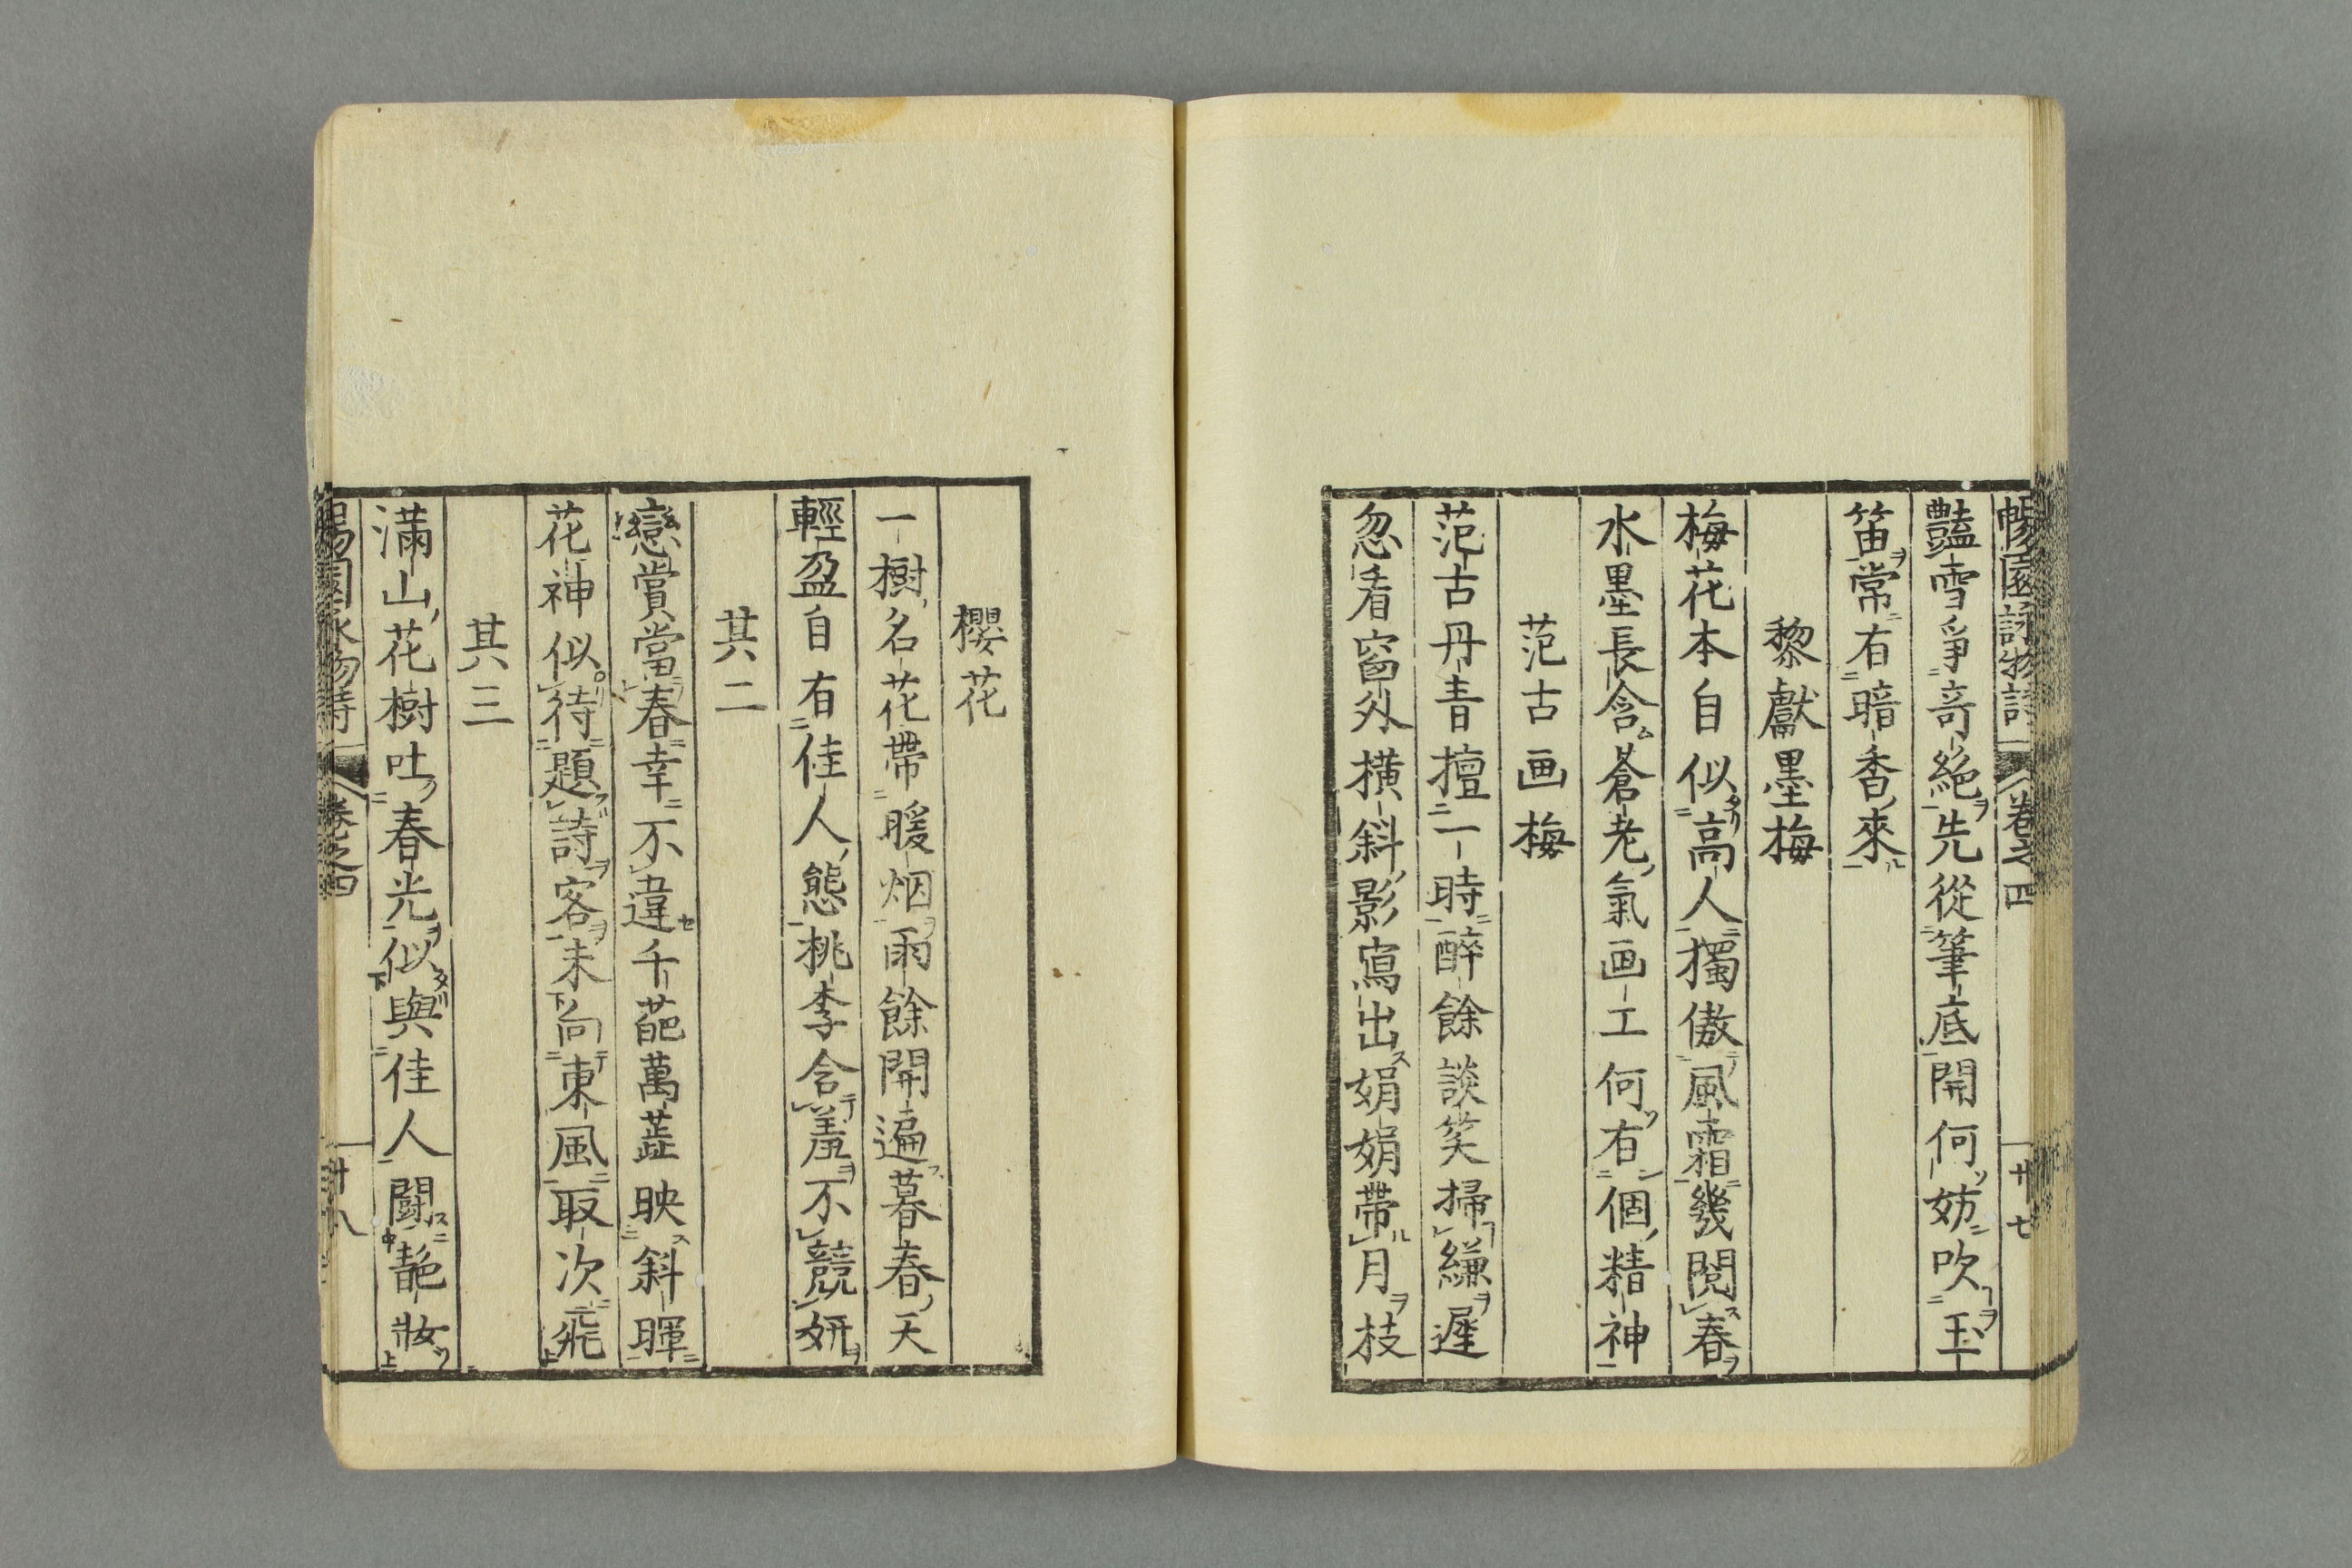 暢園詠物詩 卷之四 廿七
豔雪爭奇絶先從筆底開何妨吹玉
笛常有暗香來
黎獻墨梅
梅花本自似高人獨傲風霜幾閲春
水墨長含蒼老氣画工何有個精神
范古画梅
范古丹青擅一時醉餘談笑掃縑遲
忽看窗外橫斜影寫出娟娟帶月枝
櫻花
一樹名花帶暖烟雨餘開遍暮春天
輕盈自有佳人態桃李含羞不競妍
其二
戀賞當春幸不違千葩萬蕋映斜暉
花神似待題詩客未向東風取次飛
其三
滿山花樹吐春光似與佳人鬭靘妝
暢園詠物詩 卷之四 廿八